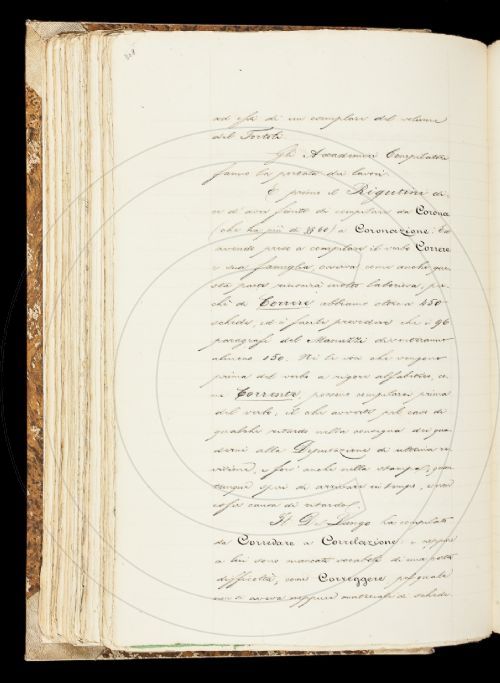 ad essa di un esemplare del volume
del Tortoli.
Gli Accademici Compilatori
fanno la portata dei lavori.
E primo il Rigutini di-
ce d'aver finito di compilare da Corona
(che ha più di §§ 60) a Coronazione. Ed
avendo preso a compilare il verbo Correre
e sua famiglia, avverte come anche que-
sta parte riuscirà molto laboriosa, poi-
chè di Correre abbiamo oltre a 450
schede, ed è facile prevedere che i 96
paragrafi del Manuzzi diventeranno
almeno 150. Nè le voci che vengono
prima del verbo a rigore alfabetico, co-
me Corrente, possono compilarsi prima
del verbo; il che avverte pel caso di
qualche ritardo nella consegna dei qua-
derni alla Deputazione di ultima re-
visione, e fors' anche nella stampa, quan-
tunque speri di arrivare in tempo, e non
esser causa di ritardo.
Il Del Lungo ha compilato
da Corredare a Correlazione: e neppure
a lui sono mancati vocaboli di una certa
difficoltà, come Correggere pel quale
non si aveva neppure materiale di schede.